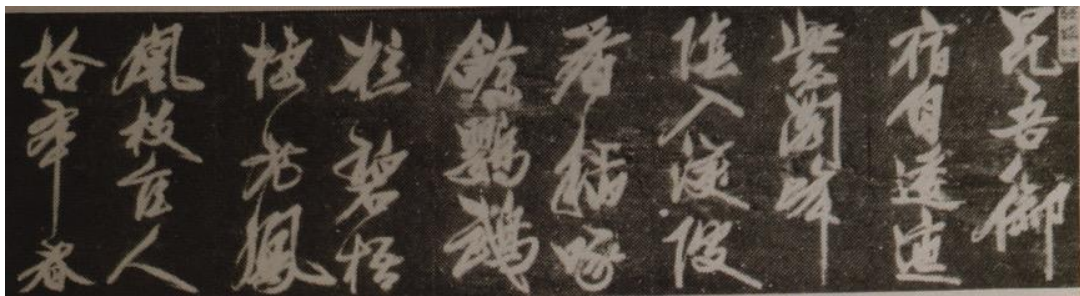 昆吾御
宿自逶迤
紫閣峰
陰入渼陂
香稻啄
餘鸚鵡
粒碧梧
棲老鳳
凰枝佳人
拾翠春